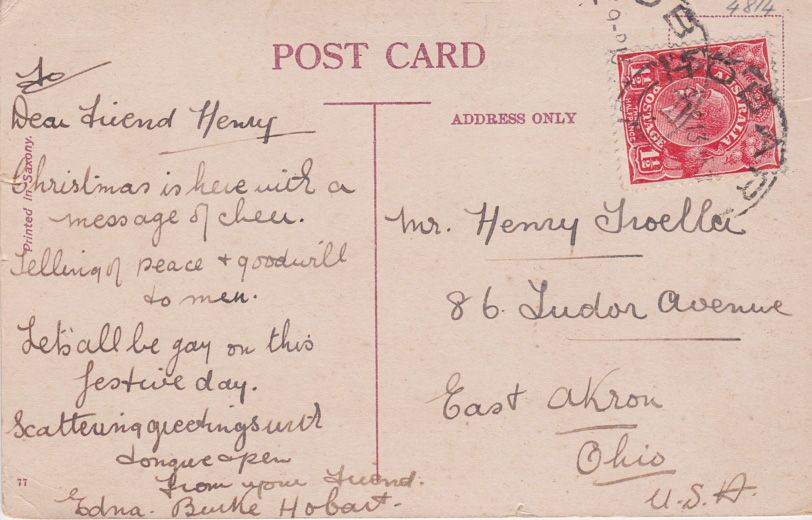 4814
POST CARD
To
Dear Friend Henry
ADDRESS ONLY
AUSTRALIA
POSTAGE
1½
1½
HOBAR
Printed in Saxony.
Christmas is here with a
message of cheer.
Telling of peace + goodwill
to men.
Let's all be gay on this
festive day.
Scattering greetings with
tongue + pen
From your Friend.
Edna. Burke Hobart.
77
Mr. Henry Troella
86. Tudor Avenue
East Akron
Ohio
U.S.A.